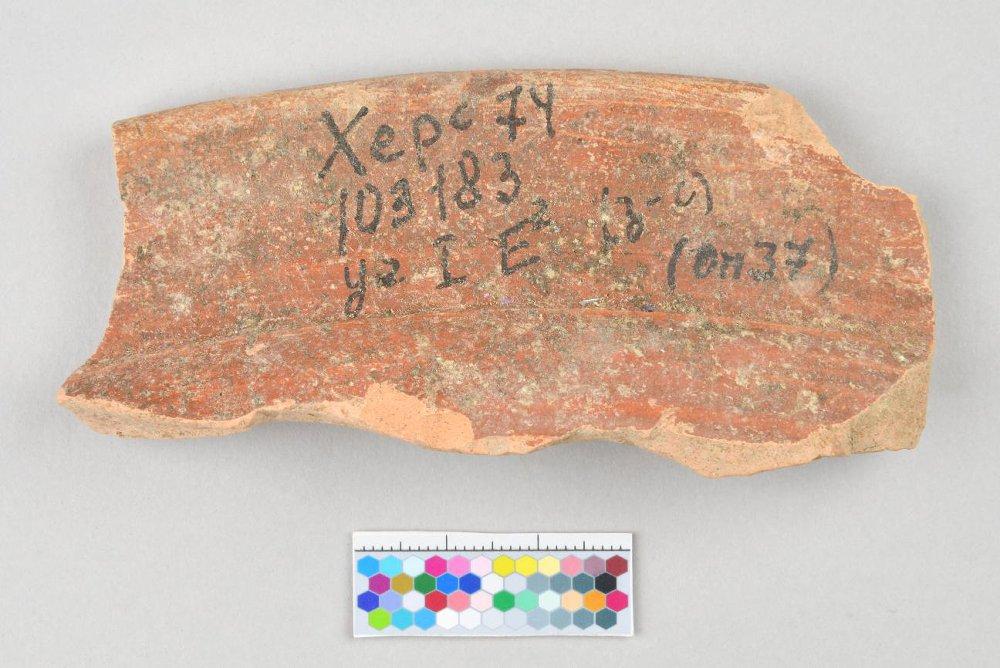 Херс 74
103183
уг I E²
(оп 37)